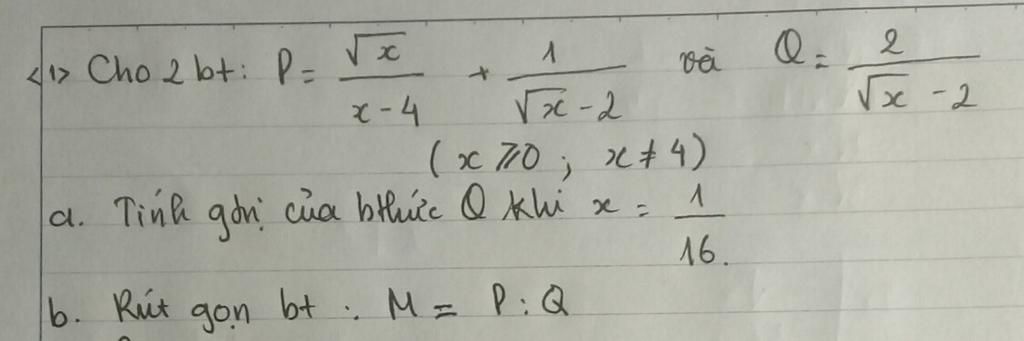 <1> Cho 2 bt: P = √x / (x - 4) + 1 / (√x - 2) và Q = 2 / (√x - 2)
(x ⩾ 0 ; x ≠ 4)
a. Tính gtrị của bthức Q khi x = 1/16.
b. Rút gọn bt : M = P : Q